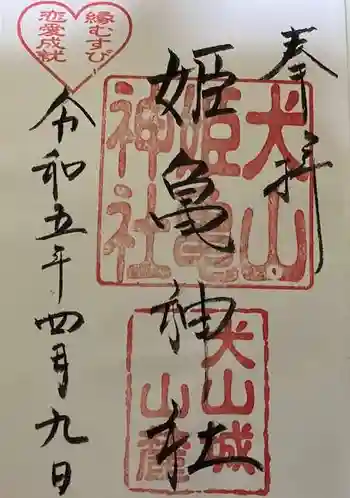 奉拝
犬山
姫亀
神社
姫亀神社
犬山城
山麓
縁むすび
恋愛成就
令和五年四月九日